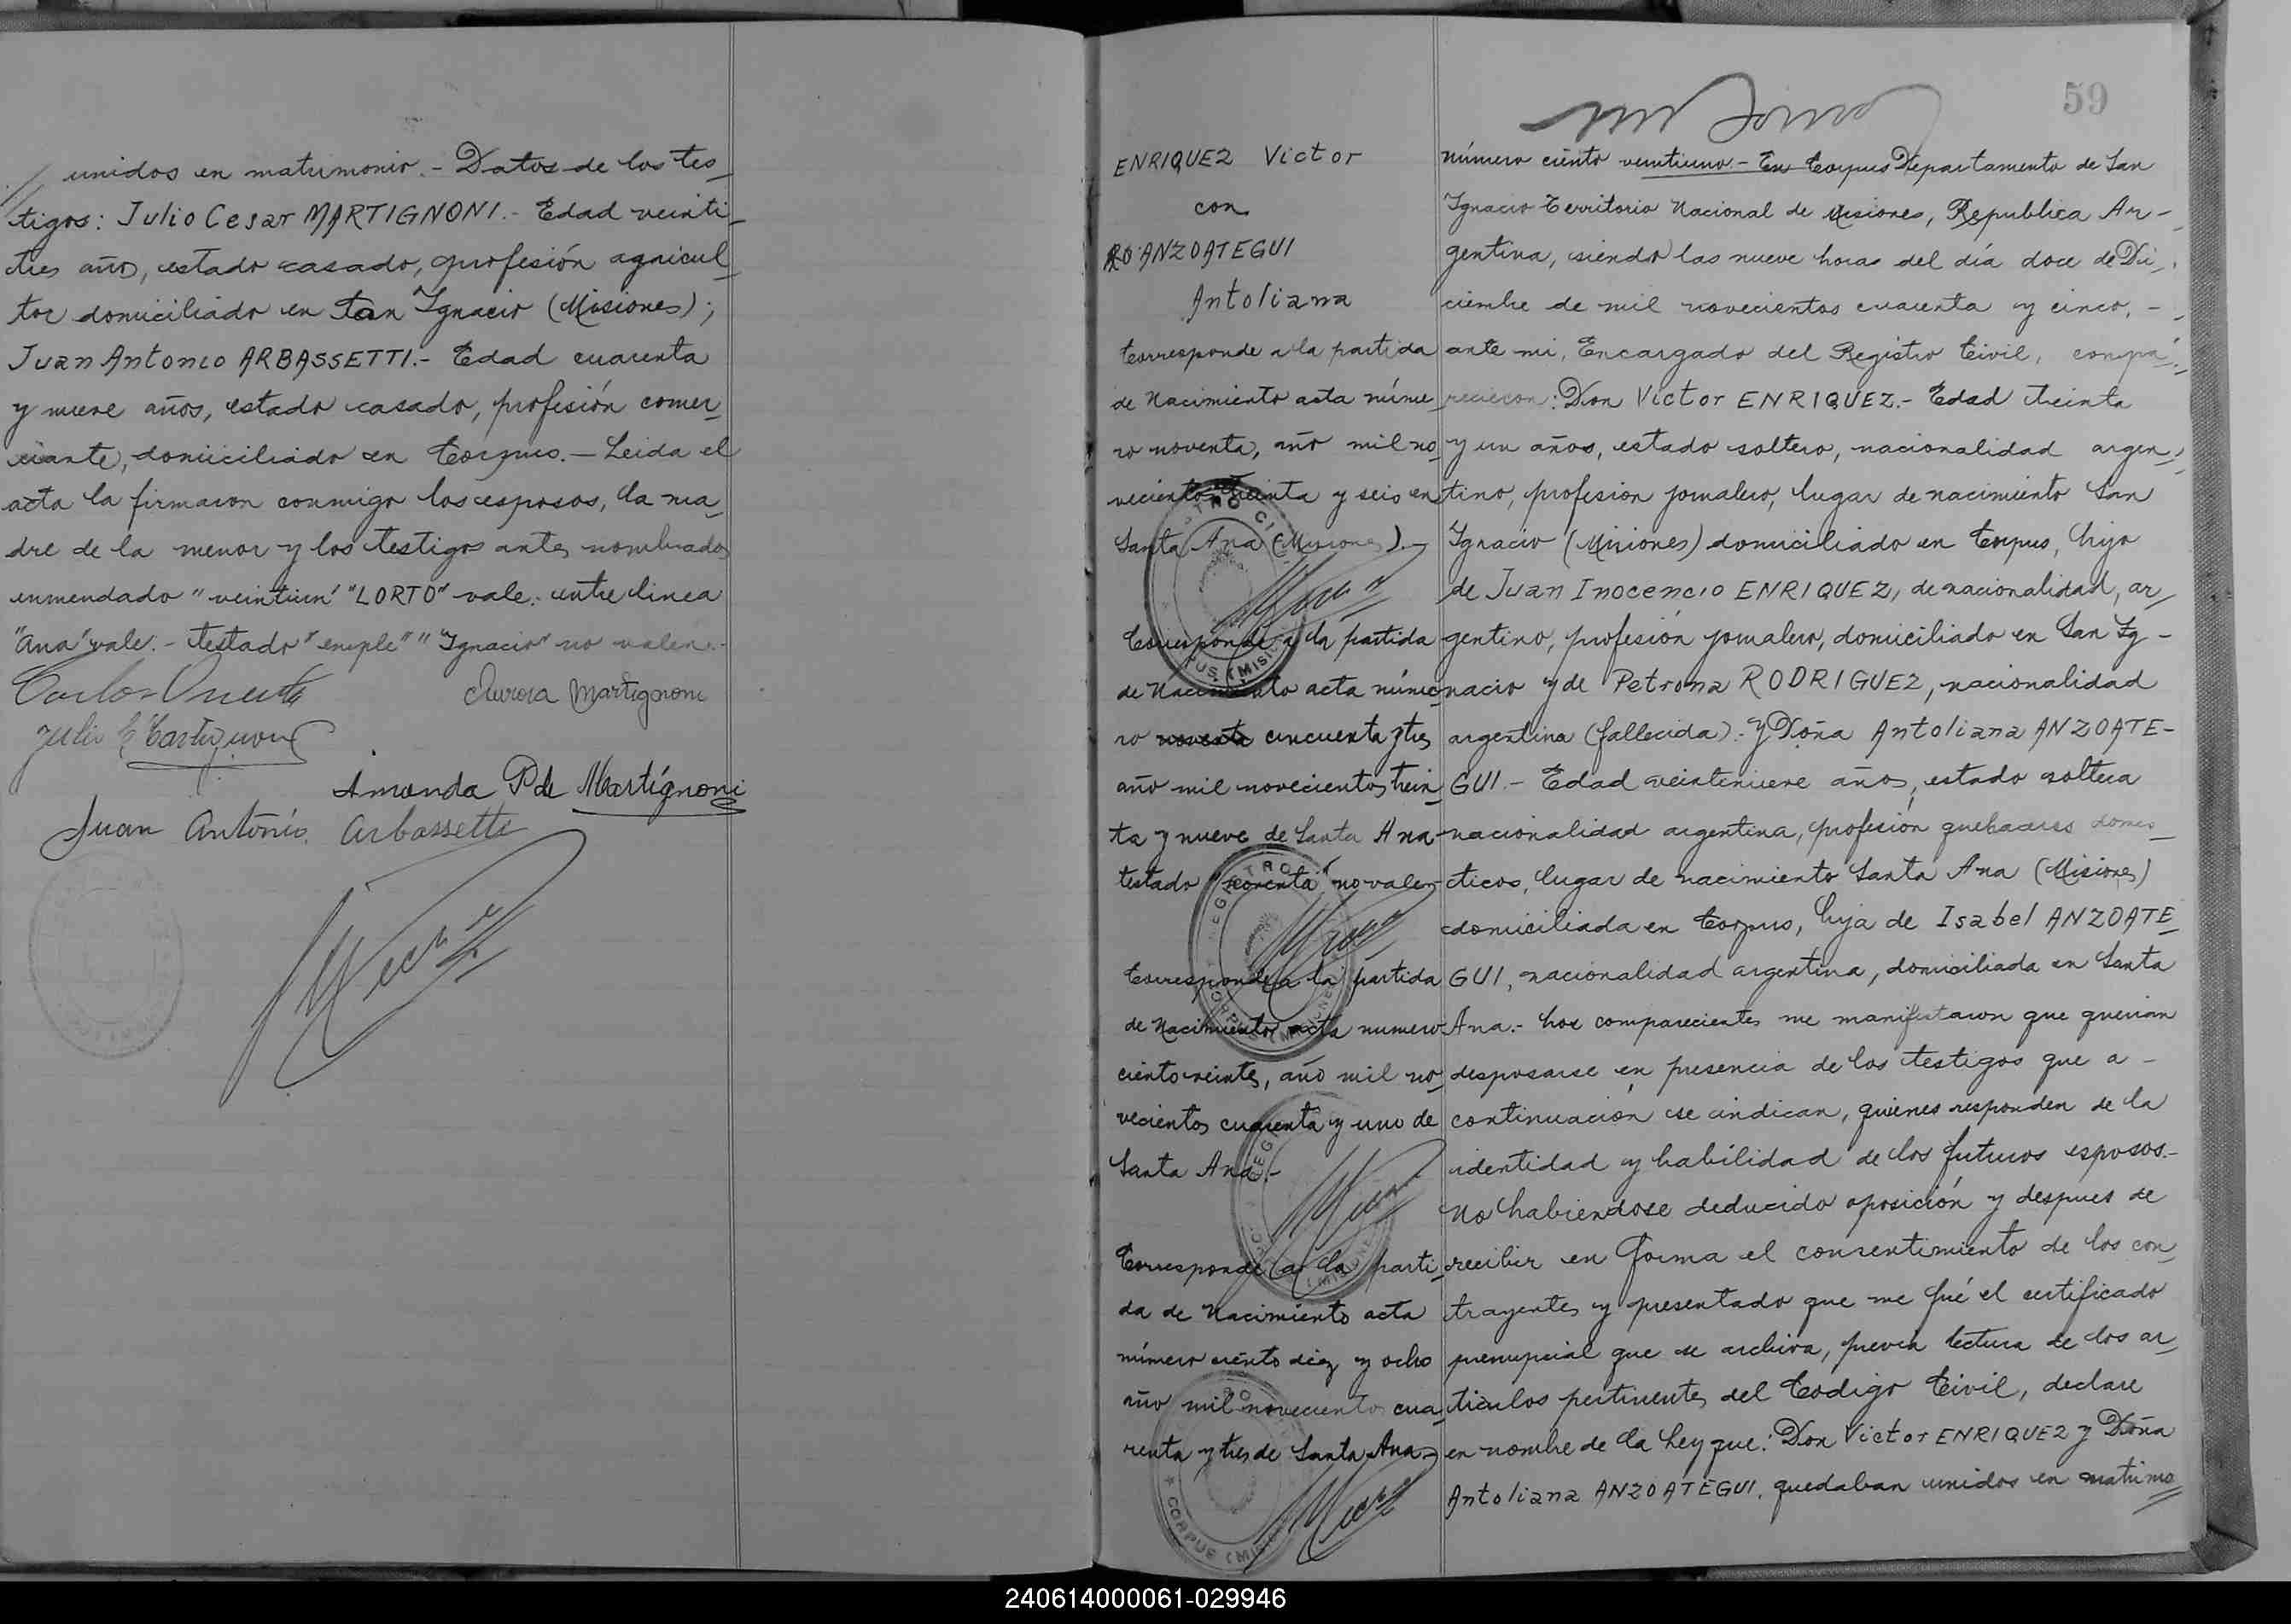 unidos en matrimonio.- Datos de los tes_
tigos: Julio Cesar MARTIGNONI.- Edad veinti_
tres años, estado casado, profesión agricul_
tor domiciliado en San Ignacio (Misiones);
Juan Antonio ARBASSETTI.- Edad cuarenta
y nueve años, estado casado, profesión comer_
ciante, domiciliado en Corpus.- Leida el
acta la firmaron conmigo los esposos, la ma_
dre de la menor y los testigos antes nombrados
enmendado "veintiun" "LORTO" vale: entre linea
"Ana" vale.- testado "emple" "Ignacio" no valen.-
Aurora Martignoni
Julio C Martignoni
Amanda P. de Martignoni
Juan Antonio Arbassetti
59
ENRIQUEZ Victor
con
ANZOATEGUI
Antoliana
Corresponde a la partida
de Nacimiento acta núme_
ro noventa, año mil no_
vecientos treinta y seis en
Santa Ana (Misiones).-
Corresponde a la partida
de Nacimiento acta núme
ro noventa cincuenta y tres
año mil novecientos trein_
ta y nueve de Santa Ana-
testado "noventa" no vale.-
Corresponde a la partida
de Nacimiento acta numero
ciento veinte, año mil no_
vecientos cuarenta y uno de
Santa Ana.-
Corresponde a la parti_
da de Nacimiento acta
número ciento diez y ocho
año mil novecientos cua_
renta y tres de Santa Ana.-
número ciento veintiuno.- En Corpus Departamento de San
Ignacio Territorio Nacional de Misiones, Republica Ar-
gentina, siendo las nueve horas del día doce de Di_
ciembre de mil novecientos cuarenta y cinco, -
ante mi, Encargado del Registro Civil, compa_
recieron: Don Victor ENRIQUEZ.- Edad treinta
y un años, estado soltero, nacionalidad argen_
tino, profesión jornalero, lugar de nacimiento San
Ignacio (Misiones) domiciliado en Corpus, hijo
de Juan Inocencio ENRIQUEZ, de nacionalidad, ar_
gentino, profesión jornalero, domiciliado en San Ig-
nacio y de Petrona RODRIGUEZ, nacionalidad
argentina (fallecida).- y Doña Antoliana ANZOATE-
GUI.- Edad veintenueve años, estado soltera
nacionalidad argentina, profesión quehaceres domes_
ticos, lugar de nacimiento Santa Ana (Misiones)
domiciliada en Corpus, hija de Isabel ANZOATE_
GUI, nacionalidad argentina, domiciliada en Santa
Ana.- Los comparecientes me manifestaron que querian
desposarse en presencia de los testigos que a -
continuación se indican, quienes responden de la
identidad y habilidad de los futuros esposos.-
No habiendose deducido oposición y despues de
recibir en forma el consentimiento de los con_
trayentes y presentado que me fué el certificado
prenupcial que se archiva, previa lectura de los ar_
ticulos pertinentes del Codigo Civil, declare
en nombre de la Ley que: Don Victor ENRIQUEZ y Doña
Antoliana ANZOATEGUI, quedaban unidos en matrimo_
240614000061-029946